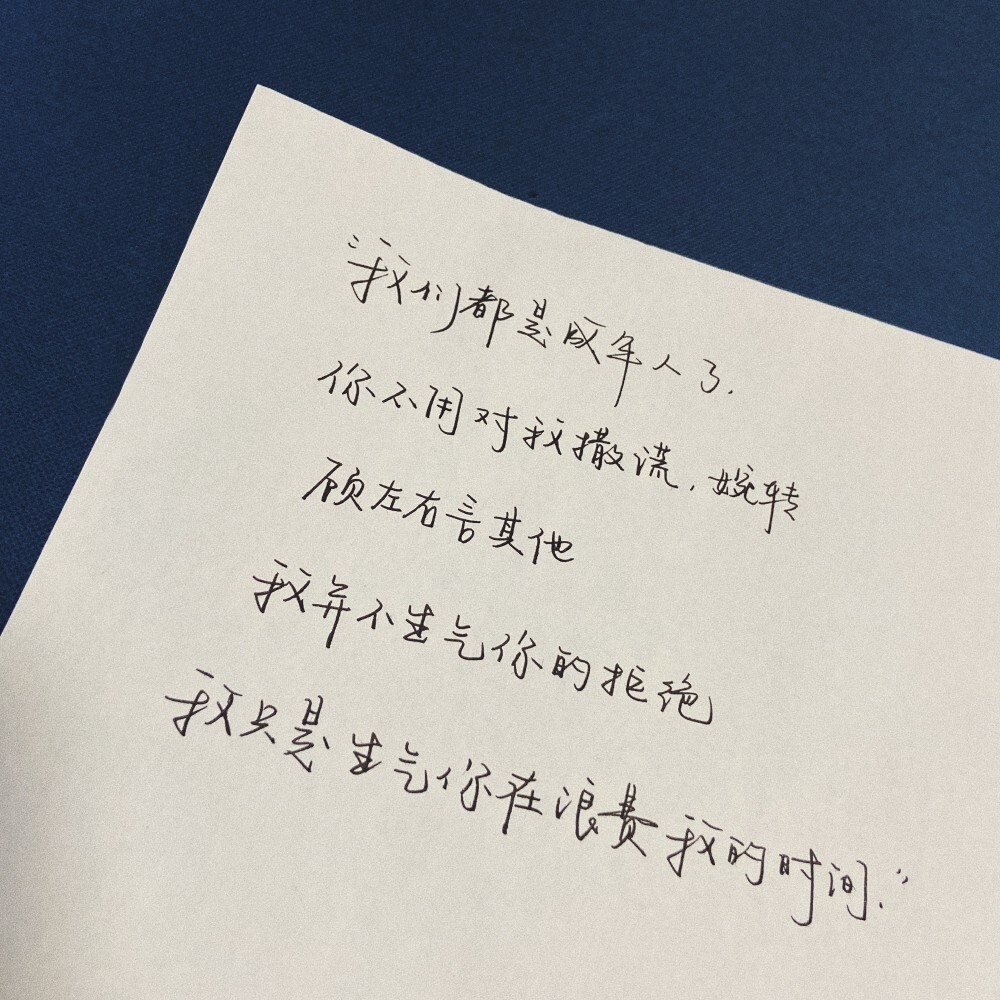 “我们都是成年人了.
你不用对我撒谎,婉转
顾左右言其他
我并不生气你的拒绝
我只是生气你在浪费我的时间.”